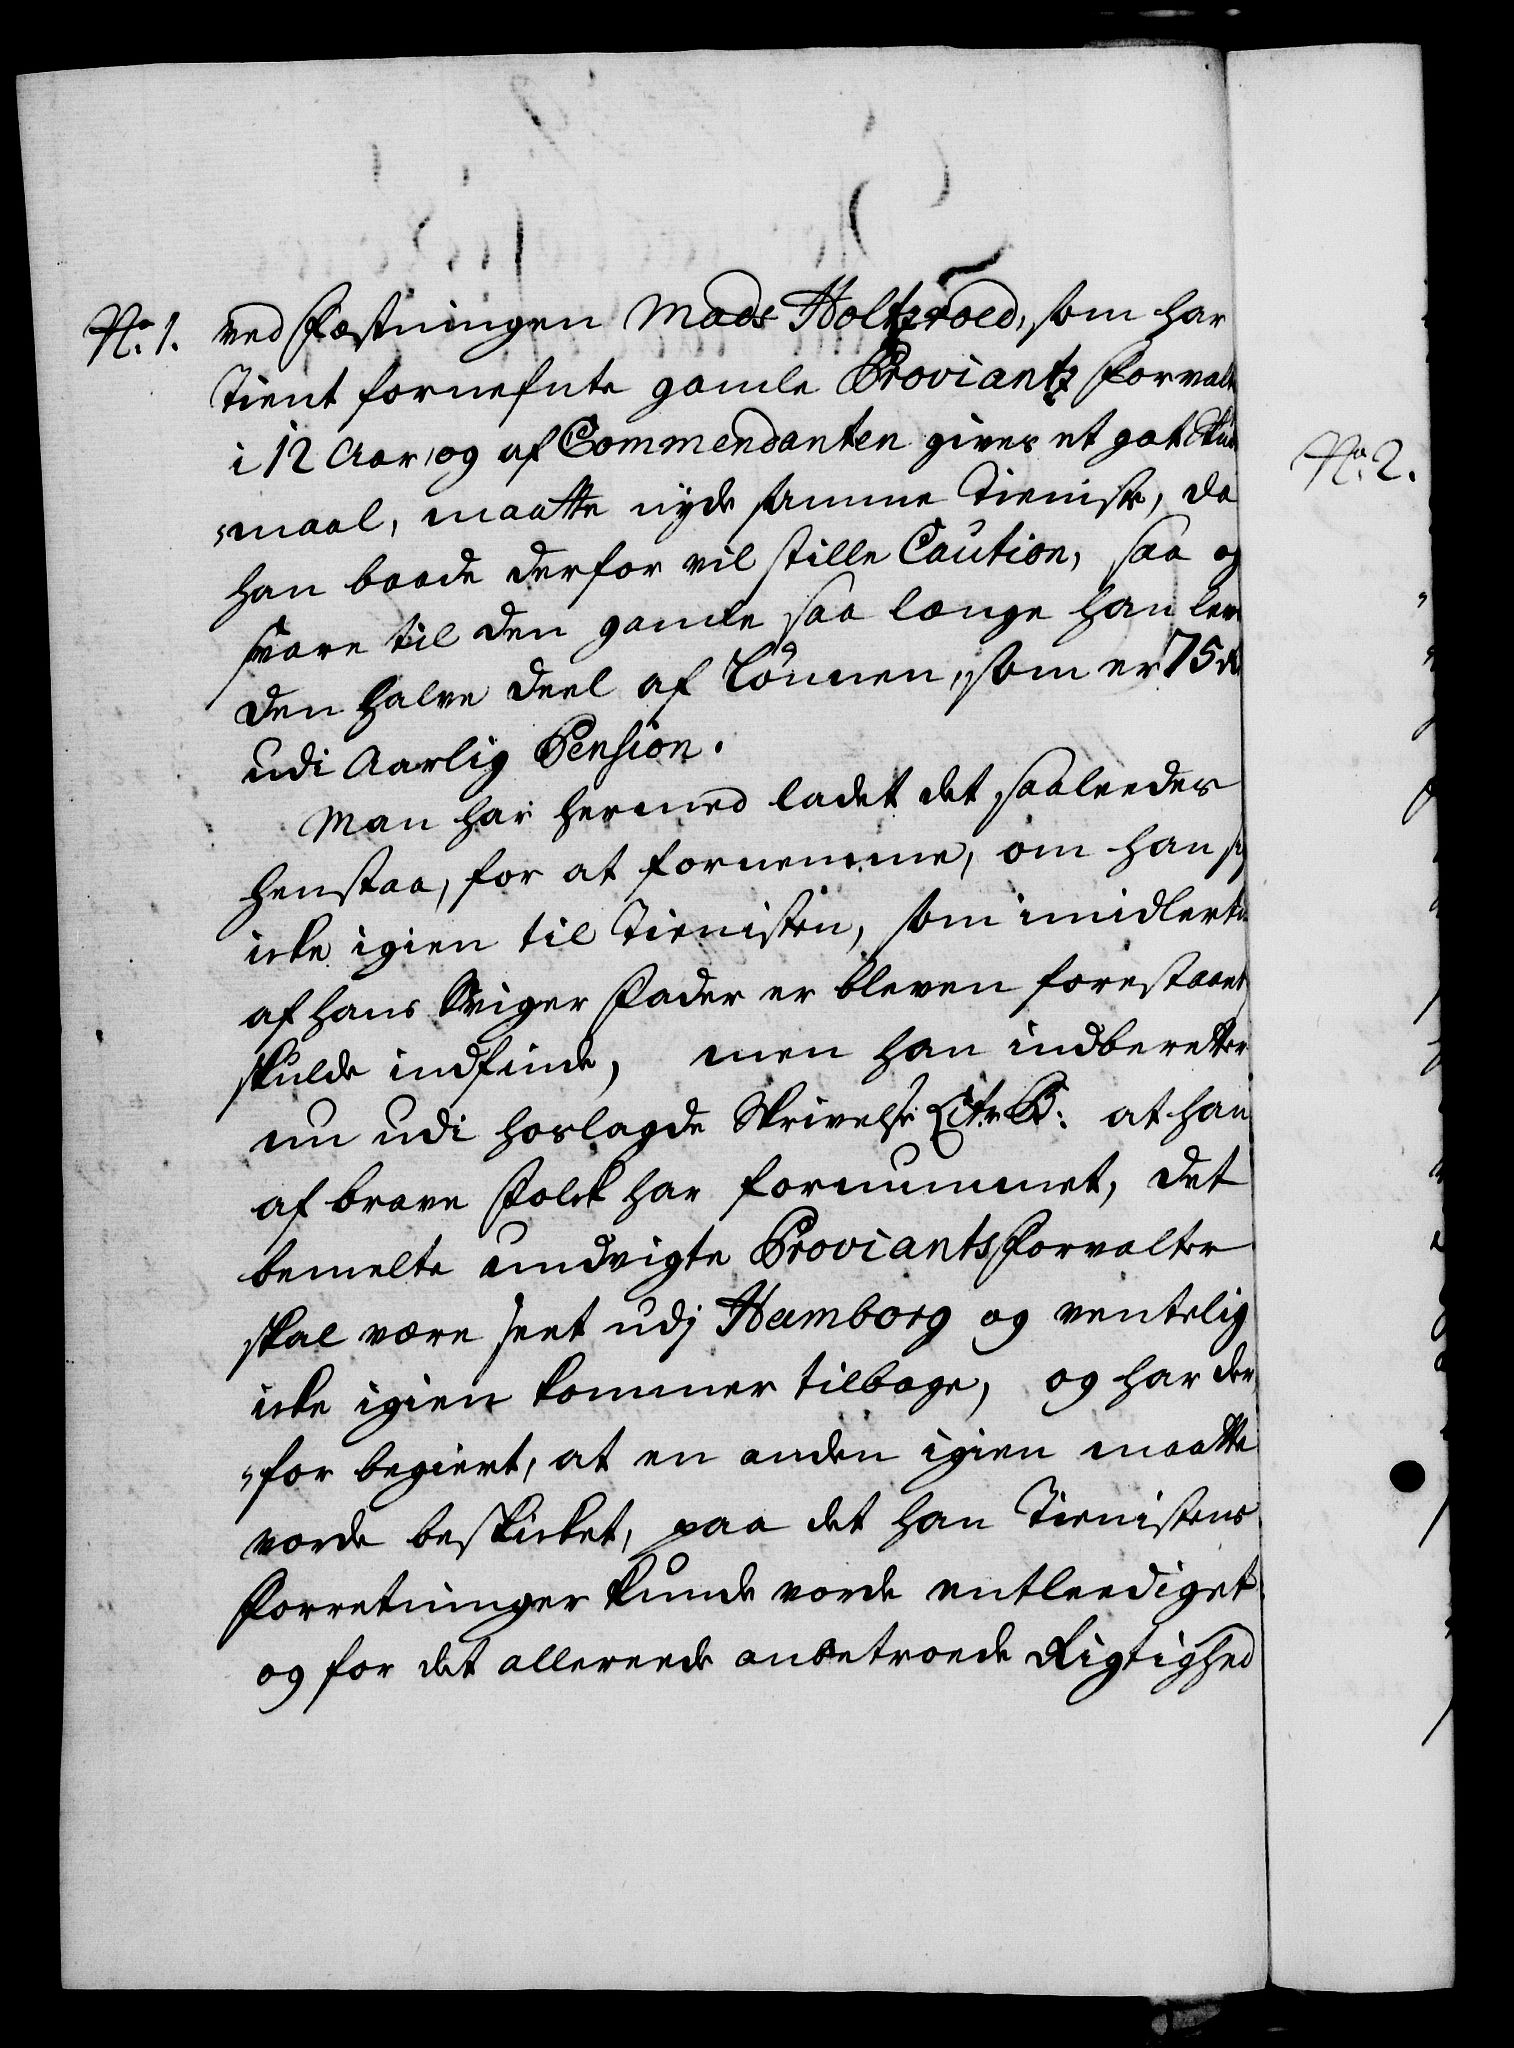 No. 1. ved Fæstningen Mads Holtzroed, som har
Tient fornefnte gamle Proviantz Forvalt
i 12 Aar, og af Commendanten gives et got Skuds
„maal, maatte nyde samme Tieniste, da
han baade derfor vil stille Caution, saa og
svare til den gamle saa længe han lev
den halve Deel af Lönnen, som er 75 rd
udi Aarlig Pension.
Man har hermed ladet det saaleedes
henstaa, for at fornemme, om han sig
icke igien til Tienisten, som imidlertid
af hans Sviger Fader er bleven forestaaet,
skulde indfinde, men han indberetter
nu udi hoslagde Skrivelse Litr. B: at han
af brave Folck har fornummet, det
bemelte undvigte Proviants Forvalter
skal være seet udj Hamborg og ventelig
icke igien kommer tilbage, og har der
„for begiert, at en anden igien maatte
vorde beskicket, paa det han Tienistens
Forretninger kunde vorde entleediget
og for det allereede anbetroede Rigtighed
No. 2.